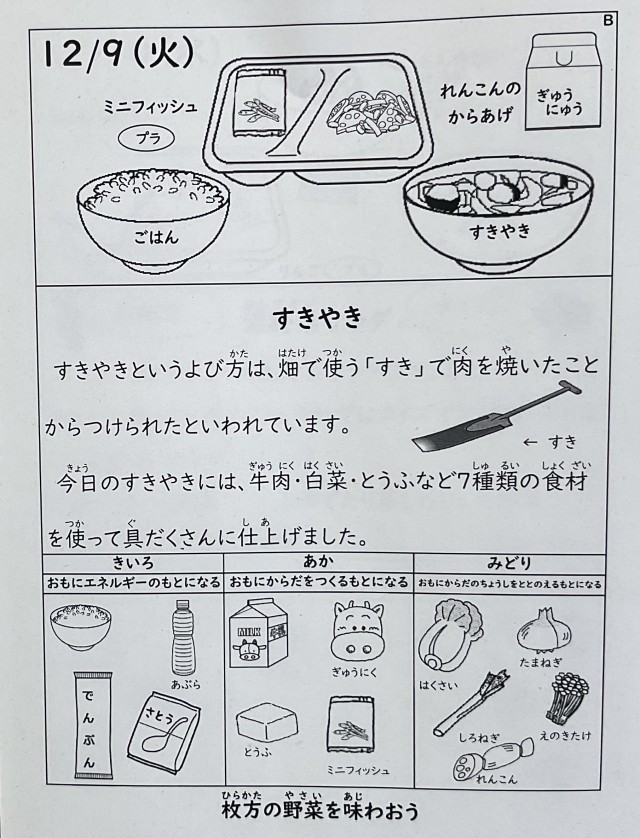 B
12/9(火)
ミニフィッシュ
プラ
れんこんの
からあげ
ぎゅう
にゅう
ごはん
すきやき
すきやき
すきやきというよび方は、畑で使う「すき」で肉を焼いたこと
かた はたけ つか にく や
からつけられたといわれています。
← すき
今日のすきやきには、牛肉・白菜・とうふなど7種類の食材
きょう ぎゅう にく はく さい しゅ るい しょく ざい
を使って具だくさんに仕上げました。
つか ぐ し あ
きいろ
おもにエネルギーのもとになる
あか
おもにからだをつくるもとになる
みどり
おもにからだのちょうしをととのえるもとになる
あぶら
でんぷん
さとう
MILK
牛乳
ぎゅうにく
とうふ
ミニフィッシュ
はくさい
たまねぎ
しろねぎ
えのきたけ
れんこん
枚方の野菜を味わおう
ひらかた やさい あじ